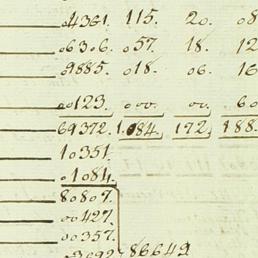 04361. 115. 20. 08
06306. 057. 18. 12
09885. 018. 06. 16
00123. 000. 00. 60
69372. 1.084. 172. 188.
10351.
01084.
80807.
00427.
00357.
03092 86649